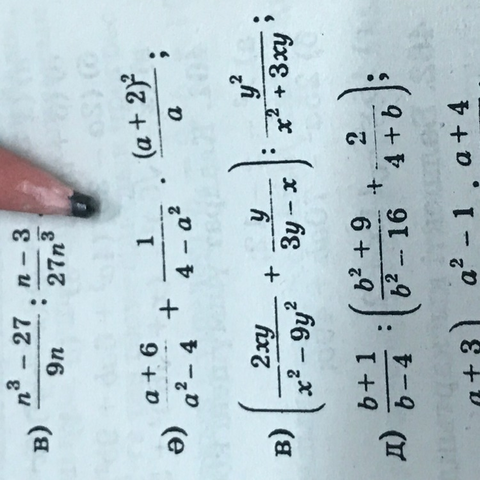 в) \frac{n^3 - 27}{9n} : \frac{n - 3}{27n^3}
ә) \frac{a + 6}{a^2 - 4} + \frac{1}{4 - a^2} \cdot \frac{(a + 2)^2}{a};
в) \left(\frac{2xy}{x^2 - 9y^2} + \frac{y}{3y - x}\right) : \frac{y^2}{x^2 + 3xy};
д) \frac{b + 1}{b - 4} : \left(\frac{b^2 + 9}{b^2 - 16} + \frac{2}{4 + b}\right);
a + 3) a^2 - 1 . a + 4